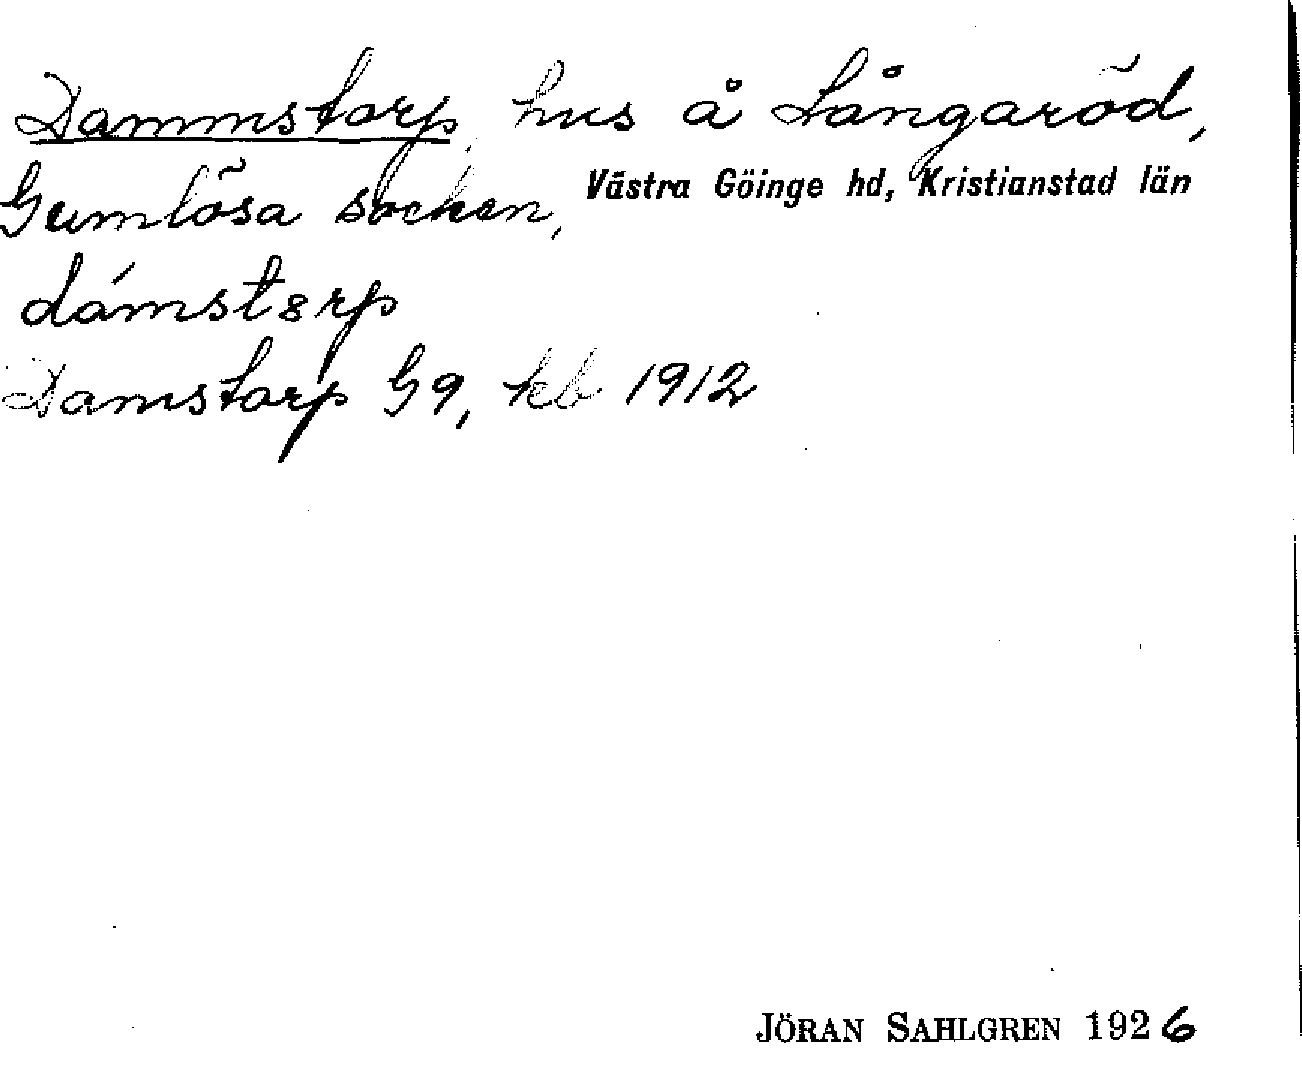 Dammstorp, hus å Långaröd,
Gumlösa socken, Västra Göinge hd, Kristianstad län
dámstɜrp
Damstorp G9, kb 1912
JÖRAN SAHLGREN 1926